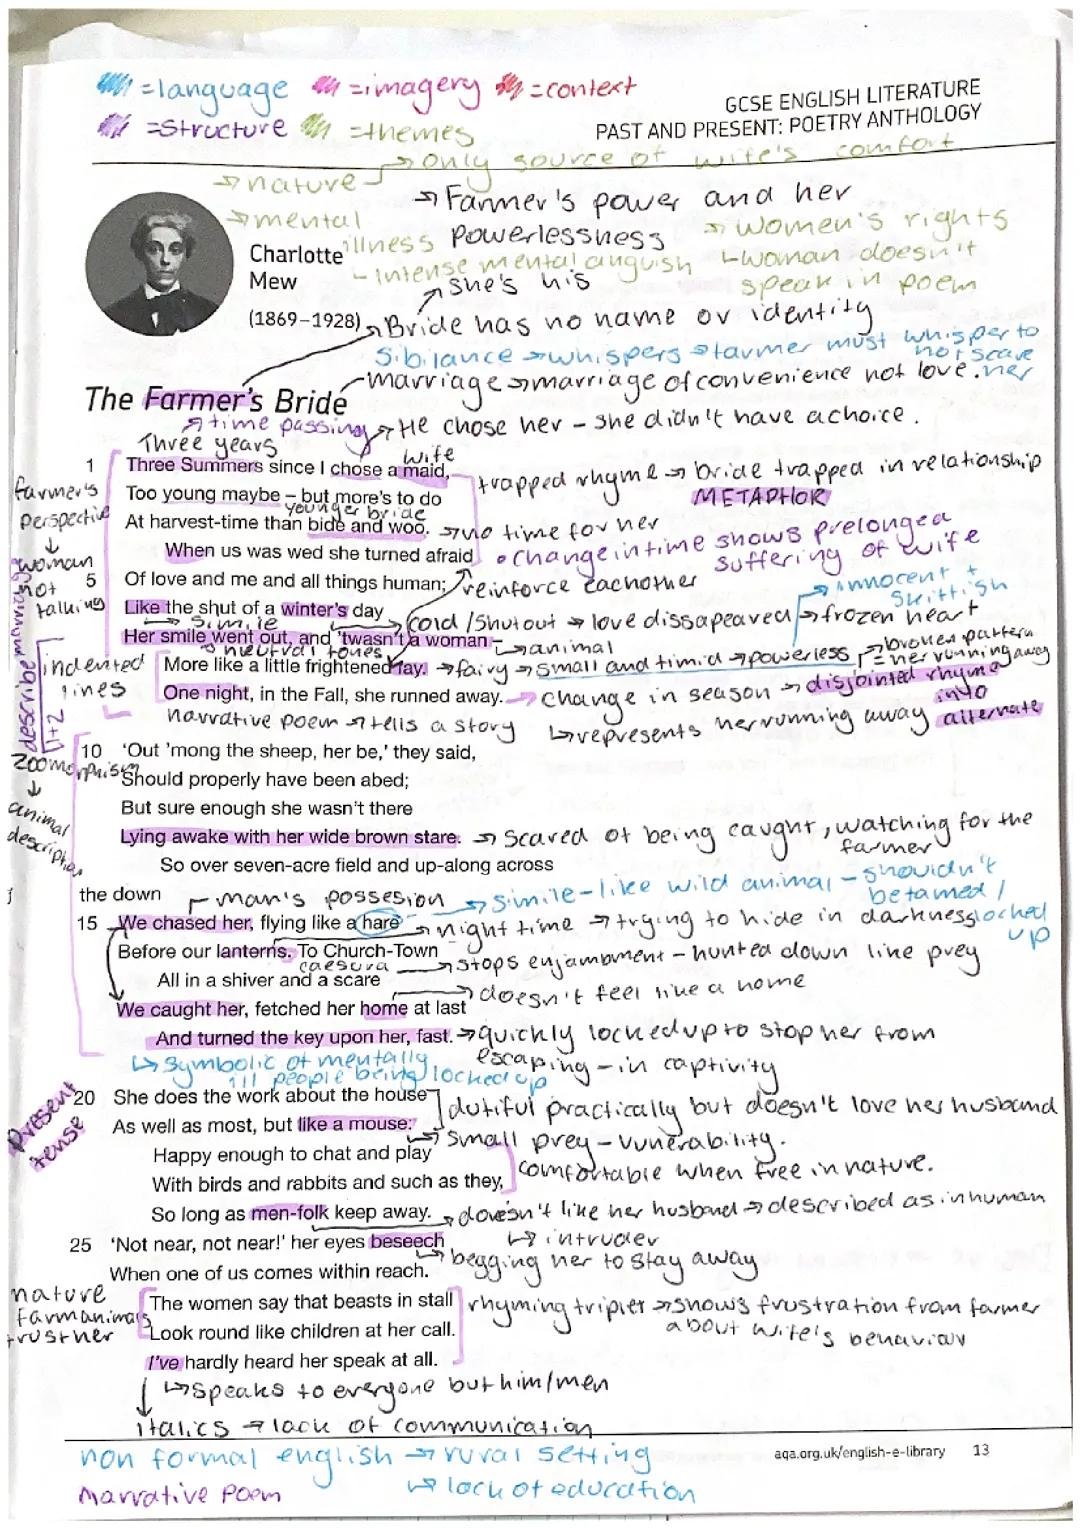 =language =imagery =context
=structure =themes
GCSE ENGLISH LITERATURE
PAST AND PRESENT: POETRY ANTHOLOGY
→ only source of wife's comfort
→ nature
→ Farmer's power and her
powerlessness
→ mental
illness
- intense mental anguish
→ women's rights
↳ woman doesn't
speak in poem
Charlotte
Mew
(1869–1928)
she's his
→ Bride has no name or identity
Sibilance → whispers → farmer must whisper to
not scare
her
- marriage → marriage of convenience not love.
The Farmer's Bride
→ time passing → He chose her - she didn't have a choice.
Three years
wife
1 Three Summers since I chose a maid,
trapped rhyme → bride trapped in relationship
METAPHOR
Too young maybe – but more's to do
younger bride
At harvest-time than bide and woo.
→ no time for her
When us was wed she turned afraid
• change in time shows prolonged
suffering of wife
5 Of love and me and all things human;
reinforce eachother
Like the shut of a winter's day
→ simile
cold / shut out → love dissapeared → frozen heart
→ innocent +
skittish
Her smile went out, and 'twasn't a woman –
→ neutral tones
↳ animal
More like a little frightened fay.
→ fairy → small and timid → powerless
→ broken pattern
= her running away
One night, in the Fall, she runned away.
→ change in season → disjointed rhyme
into
alternate
↳ represents her running away
narrative poem → tells a story
farmer's
perspective
↓
woman
not
talking
describe marriage
L1+2
indented
lines
10 'Out 'mong the sheep, her be,' they said,
Should properly have been abed;
But sure enough she wasn't there
Lying awake with her wide brown stare.
→ scared of being caught, watching for the
farmer
So over seven-acre field and up-along across
the down
zoomorphism
↓
animal
description
man's possesion
→ simile - like wild animal - shouldn't
be tamed /
locked
up
15 We chased her, flying like a hare
→ night time → trying to hide in darkness
Before our lanterns. To Church-Town
caesura → stops enjambment - hunted down like prey
All in a shiver and a scare
→ doesn't feel like a home
We caught her, fetched her home at last
And turned the key upon her, fast.
→ quickly locked up to stop her from
escaping - in captivity
↳ symbolic of mentally
ill people being locked up
Present
tense
20 She does the work about the house
dutiful practically but doesn't love her husband
As well as most, but like a mouse:
→ small prey - vunerability.
Happy enough to chat and play
With birds and rabbits and such as they,
comfortable when free in nature.
So long as men-folk keep away.
→ doesn't like her husband → described as inhuman
↳ intruder
25 'Not near, not near!' her eyes beseech
↳ begging her to stay away
When one of us comes within reach.
nature
farm animals
trust her
The women say that beasts in stall
Look round like children at her call.
I've hardly heard her speak at all.
rhyming triplet → shows frustration from farmer
about wife's behaviour
↳ speaks to everyone but him/men
italics → lack of communication
non formal english → rural setting
↳ lack of education
Narrative poem
aqa.org.uk/english-e-library 13